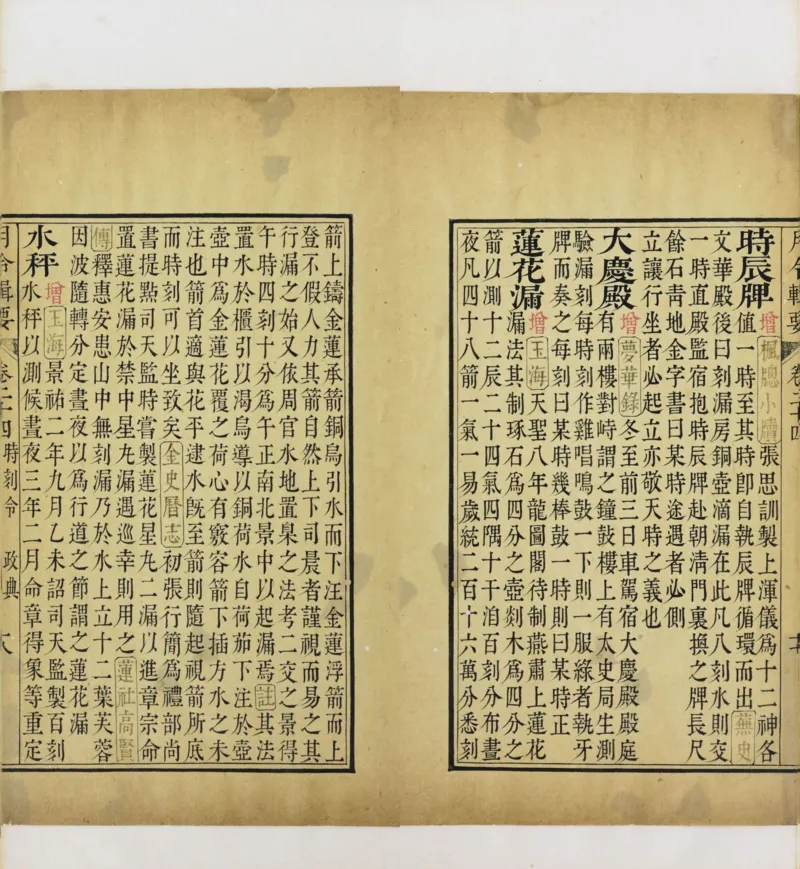 月令輯要 卷二十四
時辰牌 增 楓牕小牘 張思訓製上渾儀爲十二神各
值一時至其時卽自執辰牌循環而出 蕪史
文華殿後曰刻漏房銅壺滴漏在此凡八刻水則交
一時直殿監宿抱時辰牌赴朝淸門裏換之牌長尺
餘石靑地金字書曰某時途遇者必側
立讓行坐者必起立亦敬天時之義也
大慶殿 增 夢華錄 冬至前三日車駕宿大慶殿殿庭
有兩樓對峙謂之鐘鼓樓上有太史局生測
驗漏刻每時刻作雞唱鳴鼓一下則一服綠者執牙
牌而奏之每刻曰某時幾棒鼓一時則曰某時正
蓮花漏 增 玉海 天聖八年龍圖閣待制燕肅上蓮花
漏法其制琢石爲四分之壺剡木爲四分之
箭以測十二辰二十四氣四隅十干洎百刻分布晝
夜凡四十八箭一氣一易歲統二百十六萬分悉刻
箭上鑄金蓮承箭銅烏引水而下汪金蓮浮箭而上
登不假人力其箭自然上下司晨者謹視而易之其
行漏之始又依周官水地置臬之法考二交之景得
午時四刻十分爲午正南北景中以起漏焉 註 其法
置水於櫃引以渴烏導以銅荷水自荷茄下注於壺
壺中爲金蓮花覆之荷心有竅容箭下插方水之未
注也箭首適與花平逮水旣至箭則隨起視箭所底
而時刻可以坐致矣 金史曆志 初張行簡爲禮部尚
書提點司天監時嘗製蓮花星丸二漏以進章宗命
置蓮花漏於禁中星丸漏遇巡幸則用之 蓮社高賢
傳 釋惠安患山中無刻漏乃於水上立十二葉芙蓉
因波隨轉分定晝夜以爲行道之節謂之蓮花漏
水秤 增 玉海 景祐二年九月乙未詔司天監製百刻
水秤以測候晝夜三年二月命章得象等重定
月令輯要 卷二十四 時刻令 政典